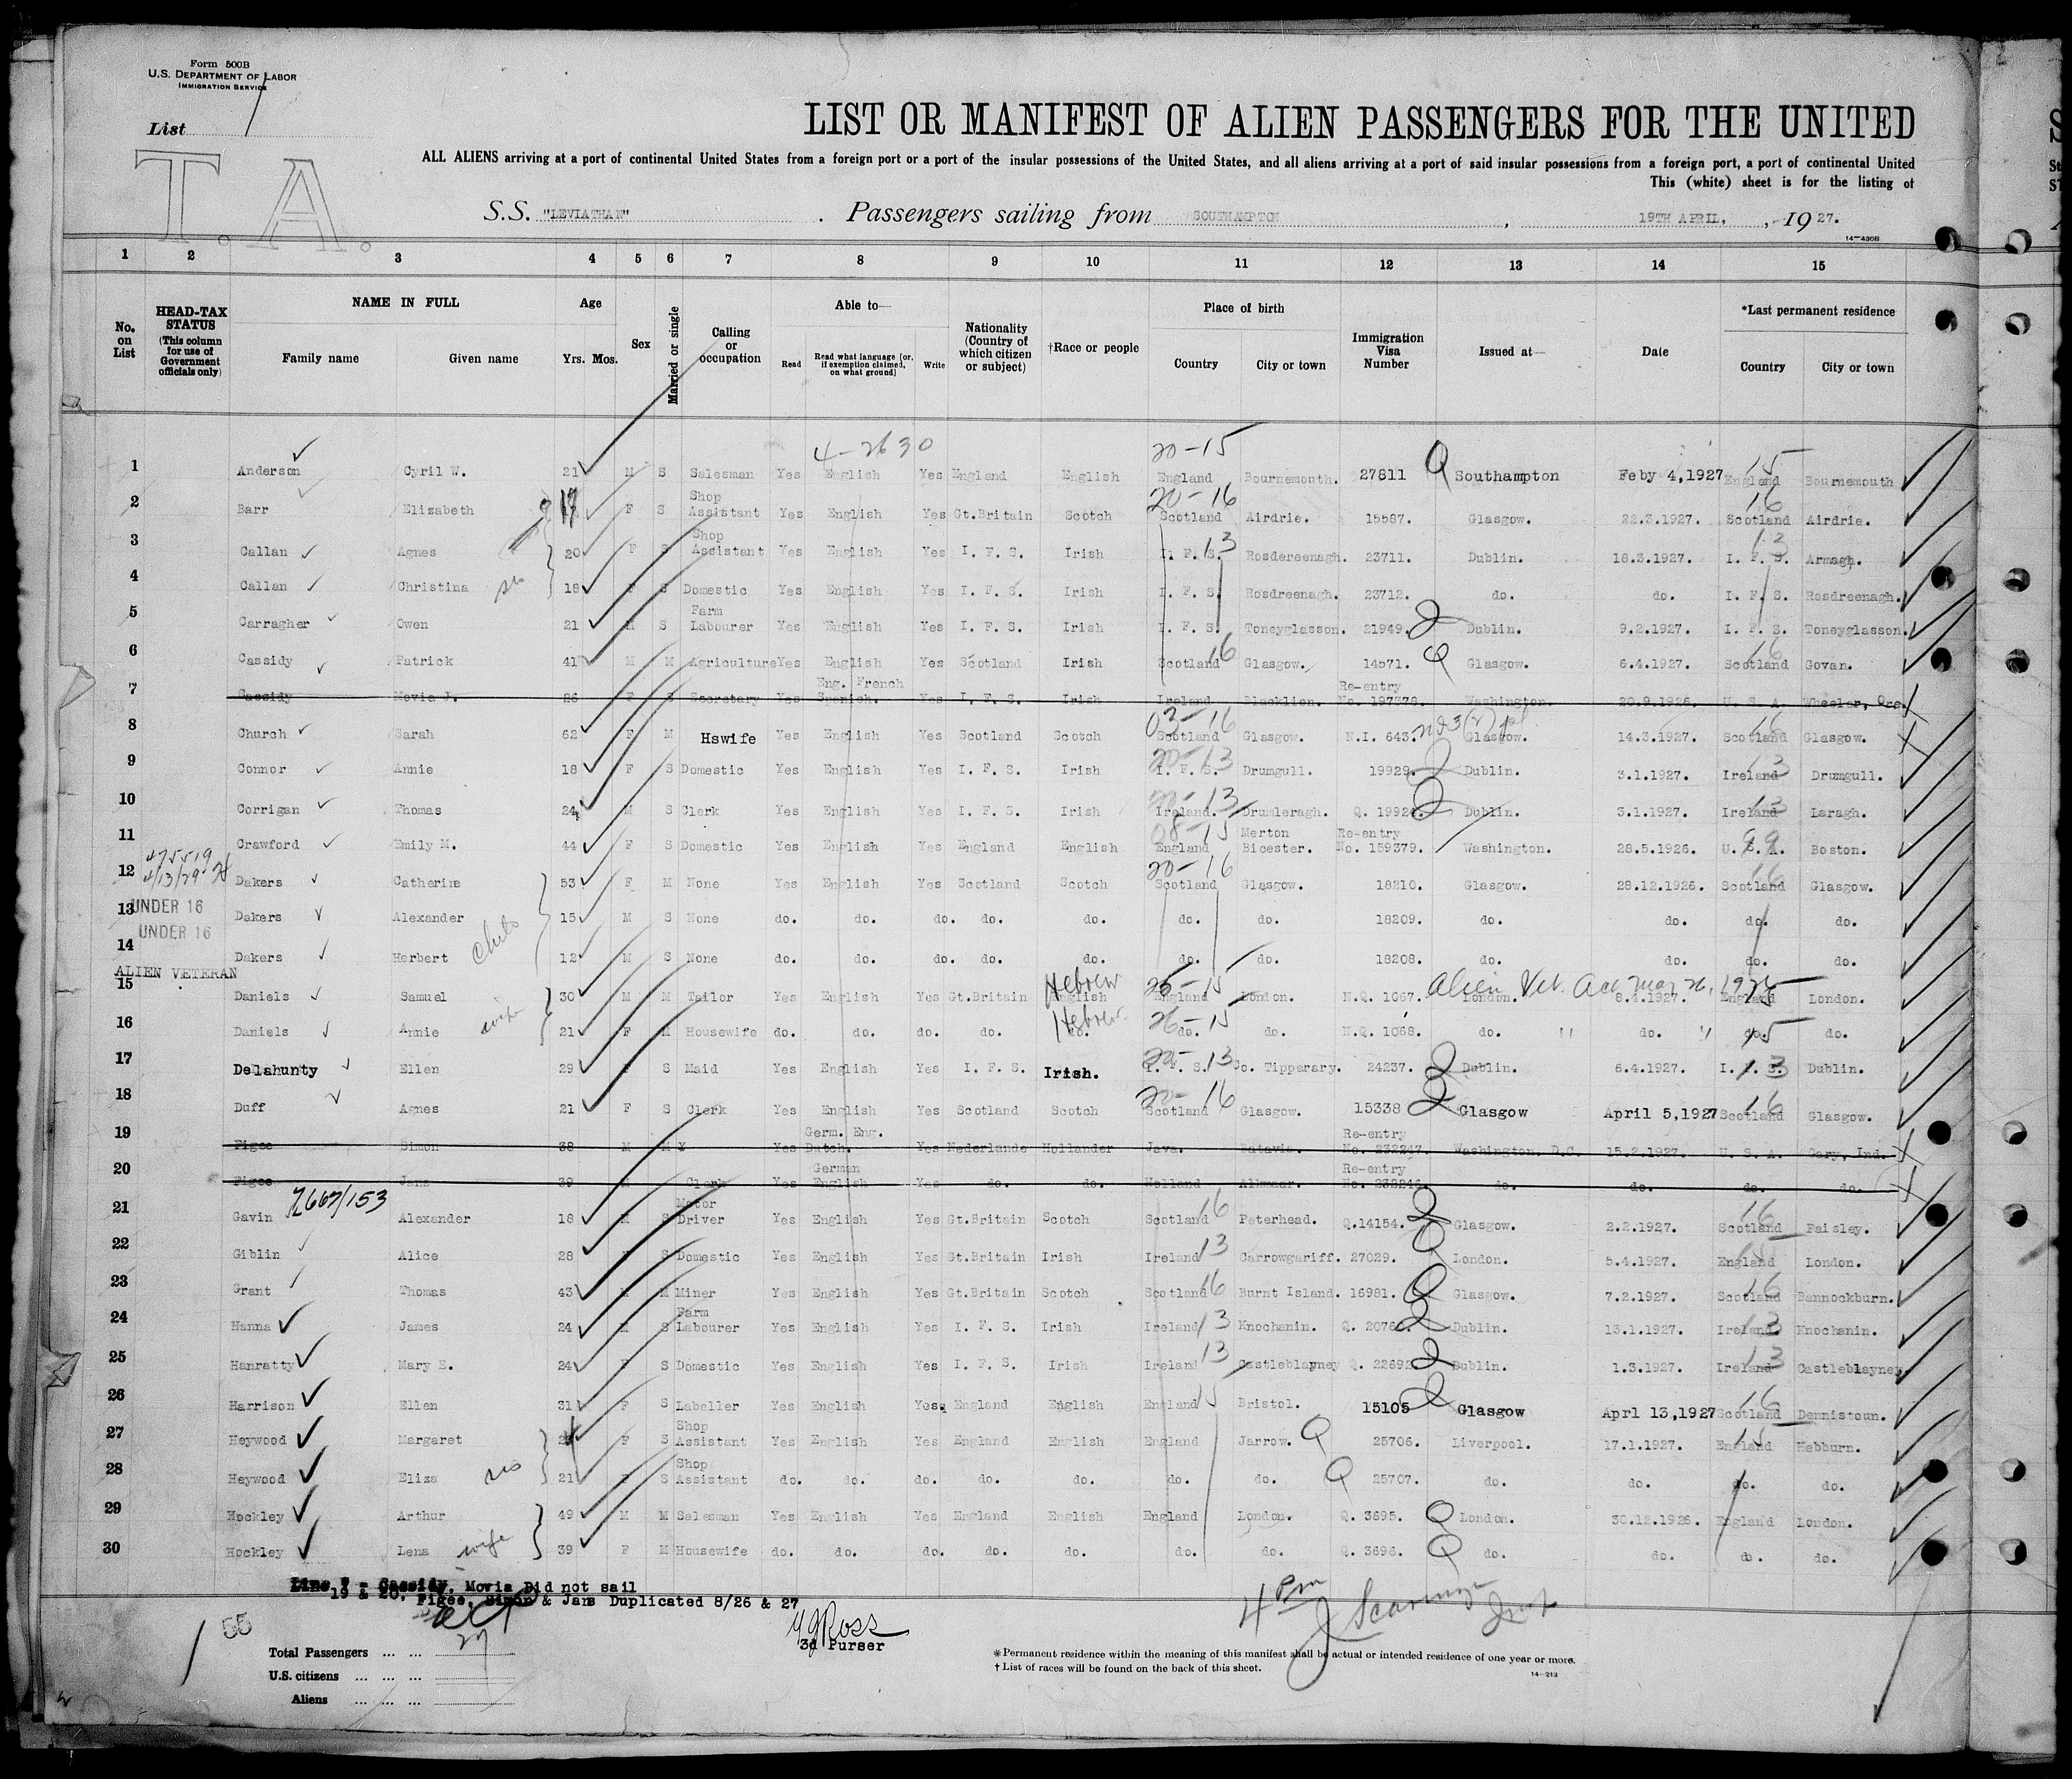 Form 500B
U.S. DEPARTMENT OF LABOR
IMMIGRATION SERVICE
List 1
T. A.
LIST OR MANIFEST OF ALIEN PASSENGERS FOR THE UNITED
ALL ALIENS arriving at a port of continental United States from a foreign port or a port of the insular possessions of the United States, and all aliens arriving at a port of said insular possessions from a foreign port, a port of continental United
This (white) sheet is for the listing of
S.S. "LEVIATHAN" . Passengers sailing from SOUTHAMPTON , 19TH APRIL, , 19 27.
14-430B
1 2 3 4 5 6 7 8 9 10 11 12 13 14 15
No. on List
HEAD-TAX STATUS (This column for use of Government officials only)
NAME IN FULL
Family name Given name
Age
Yrs. Mos.
Sex
Married or single
Calling or occupation
Able to—
Read Read what language [or, if exemption claimed, on what ground] Write
Nationality (Country of which citizen or subject)
†Race or people
Place of birth
Country City or town
Immigration Visa Number
Issued at—
Date
*Last permanent residence
Country City or town
4-2630 20-15
1 Anderson Cyril W. 21 M S Salesman Yes English Yes England English England Bournemouth. 27811 Q Southampton Feby 4,1927 England 15 Bournemouth
2 Barr Elizabeth 17 F S Shop Assistant Yes English Yes Gt.Britain Scotch 20-16 Scotland Airdrie. 15587. Glasgow. 22.3.1927. 16 Scotland Airdrie.
3 Callan Agnes 20 F S Shop Assistant Yes English Yes I. F. S. Irish I. F. S. 13 Rosdereenagh. 23711. Dublin. 18.3.1927. 13 I. F. S. Armagh.
4 Callan Christina sis 18 F S Domestic Yes English Yes I. F. S. Irish I. F. S. Rosdreenagh. 23712. do. do. I. F. S. Rosdreenagh.
5 Carragher Owen 21 M S Farm Labourer Yes English Yes I. F. S. Irish I. F. S. Toneyglasson. 21949. Dublin. 9.2.1927. I. F. S. Toneyglasson.
6 Cassidy Patrick 41 M M Agriculture Yes English Yes Scotland Irish Scotland 16 Glasgow. 14571. Q Glasgow. 6.4.1927. 16 Scotland Govan.
7 Cassidy Movia J. 26 F S Secretary Yes Eng. French Spanish. Yes I. F. S. Irish Ireland Blacklion. Re-entry No. 197378. Washington. 20.9.1926. U. S. A. Wheeler, Ore.
8 Church Sarah 62 F M Hswife Yes English Yes Scotland Scotch 03-16 Scotland Glasgow. N.I. 643. Glasgow. 14.3.1927. 16 Scotland Glasgow.
9 Connor Annie 18 F S Domestic Yes English Yes I. F. S. Irish 20-13 I. F. S. Drumgull. 19929. Dublin. 3.1.1927. 13 Ireland Drumgull.
10 Corrigan Thomas 24 M S Clerk Yes English Yes I. F. S. Irish 20-13 Ireland. Drumleragh. Q. 19924. Dublin. 3.1.1927. 13 Ireland Laragh.
11 Crawford Emily M. 44 F S Domestic Yes English Yes England English 08-15 England Merton Bicester. Re-entry No. 159379. Washington. 28.5.1926. 99 U. S. A. Boston.
475519
4/13/29
12 Dakers Catherine 53 F M None Yes English Yes Scotland Scotch 20-16 Scotland Glasgow. 18210. Glasgow. 28.12.1926. 16 Scotland Glasgow.
UNDER 16
13 Dakers Alexander 15 M S None do. do. do. do. do. do. do. 18209. do. do. do. do.
UNDER 16
14 Dakers Herbert 12 M S None do. do. do. do. do. do. do. 18208. do. do. do. do.
ALIEN VETERAN
15 Daniels Samuel 30 M M Tailor Yes English Yes Gt.Britain English Hebrew 25-15 England London. N.Q. 1067. London. Alien Vet. Act May 26, 1926 8.4.1927. England 15 London.
16 Daniels Annie wife 21 F M Housewife do. do. do. do. do. Hebrew 26-15 do. do. N.Q. 1068. do. " do. " do. 15 do.
17 Delahunty Ellen 29 F S Maid Yes English Yes I. F. S. Irish. 20-13 I. F. S. Co. Tipperary. 24237. Dublin. 6.4.1927. I. F. S. 13 Dublin.
18 Duff Agnes 21 F S Clerk Yes English Yes Scotland Scotch 20-16 Scotland Glasgow. 15338 Glasgow April 5,1927 Scotland 16 Glasgow.
19 Figee Simon 38 M M X Yes Germ. Eng. Dutch. Yes Nederlands Hollander Java. Batavia. Re-entry No. 232247. Washington. D.C. 15.2.1927. U. S. A. Gary, Ind.
20 Figee Jans 39 M Clerk Yes German English Yes do. do. Holland Alkmaar. Re-entry No. 232246. do. do. do. do.
21 Gavin 7667/153 Alexander 18 M S Motor Driver Yes English Yes Gt.Britain Scotch Scotland 16 Peterhead. Q.14154. Glasgow. 2.2.1927. 16 Scotland Paisley.
22 Giblin Alice 28 F S Domestic Yes English Yes Gt.Britain Irish Ireland 13 Carrowgariff. 27029. London. 5.4.1927. 15 England London.
23 Grant Thomas 43 M M Miner Yes English Yes Gt.Britain Scotch Scotland 16 Burnt Island. 16981. Glasgow. 7.2.1927. 16 Scotland Bannockburn.
24 Hanna James 24 M S Farm Labourer Yes English Yes I. F. S. Irish Ireland 13 Knochanin. Q. Dublin. 13.1.1927. Ireland 13 Knochanin.
25 Hanratty Mary E. 24 F S Domestic Yes English Yes I. F. S. Irish Ireland 13 Castleblayney Q. 22692 Dublin. 1.3.1927. Ireland 13 Castleblayney.
26 Harrison Ellen 31 F S Labeller Yes English Yes. England English England 15 Bristol. 15105 Glasgow Aprl 13,1927 Scotland 16 Dennistoun.
27 Heywood Margaret F S Shop Assistant Yes English Yes England English England Jarrow. Q 25706. Liverpool. 17.1.1927. England 15 Hebburn.
28 Heywood Eliza sis 21 F S Shop Assistant do. do. do. do. do. do. do. Q 25707. do. do. do. do.
29 Hockley Arthur 49 M M Salesman Yes English Yes England English England London. Q. 3695. Q London. 30.12.1926. England London.
30 Hockley Lena wife 39 F M Housewife do. do. do. do. do. do. do. Q. 3696. Q do. do. do. do.
Line 7 - Cassidy, Movia Did not sail
19 & 20, Figee, Simon & Jans Duplicated 8/26 & 27
55
27
Ross
3d Purser
4 Pm
Total Passengers ... ...
U.S. citizens ... ... ...
Aliens ... ... ...
* Permanent residence within the meaning of this manifest shall be actual or intended residence of one year or more.
† List of races will be found on the back of this sheet.
14-213